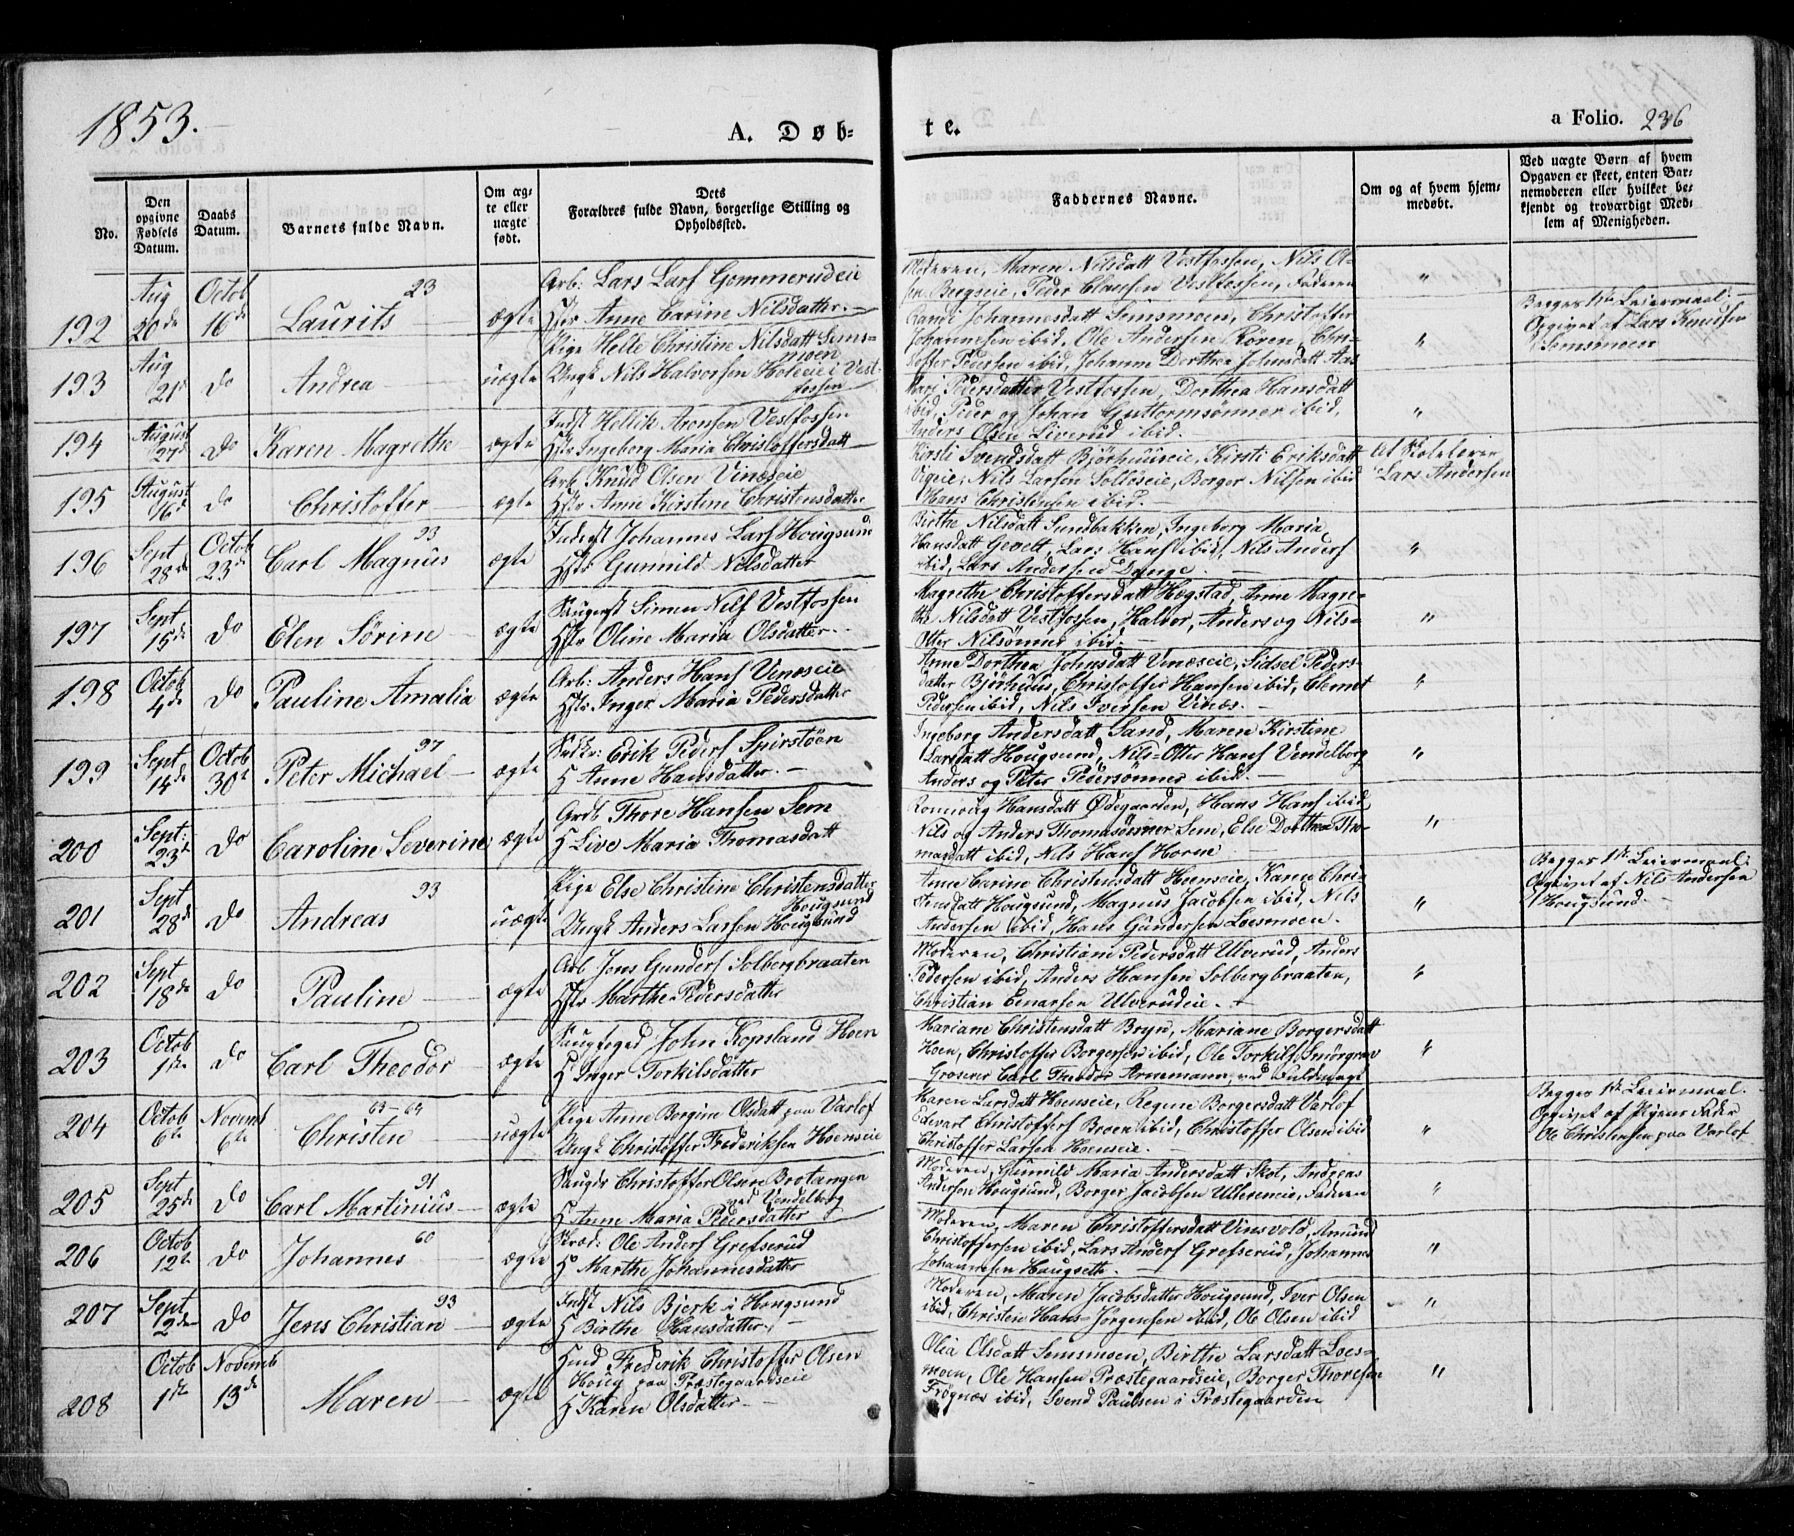 1853.
A. Døb-
te.
a Folio. 236
No.
Den opgivne Fødsels Datum.
Daabs Datum.
Barnets fulde Navn.
Om ægte eller uægte født.
Dets Forældres fulde Navn, borgerlige Stilling og Opholdssted.
Faddernes Navne.
Om og af hvem hjemmedøbt.
Ved uægte Børn af hvem Opgaven er skeet, enten Barnemoderen eller hvilket bekjendt og troværdigt Medlem af Menigheden.
192
Aug 20de
Octob 16de
23
Laurits
ægte
Arb: Lars Lars Gommerudeie
Hstr Anne Carine Nilsdatter.
Moderen, Maren Nilsdatt Vestfossen, Nils Ol-
sen Bergseie, Peder Clausen Vestfossen, Faderen
"
193
Aug 21de
do
Andrea
uægte
Pige Helle Christine Nilsdatt Sems-
moen
Ungk Nils Halvorsen Holeie i Vest-
fossen
Johannesdatt Semsmoen, Christoffer
Johannesen ibid, Ole Andersen Røren, Chri-
stoffer Pedersen ibid, Johanne Dorthea Johnsdatt Aas
"
Begges 1ste Leiermaal:
Opgivet af Lars Knudsen
Semsmoen
194
August 27de
do
Karen Magrethe
ægte
Indst Hellik Aronsen Vestfossen
Hstr Ingeborg Maria Christoffersdatt
Mari Pedersdatter Vestfossen, Dorthea Hansdatt
ibid, Peder og Johan Guttormsønner ibid,
Anders Olsen Liverud ibid.
"
195
August 16de
do
Christoffer
ægte
Arb Knud Olsen Vinæseie
Hstr Anne Kirstine Christensdatter
Kirsti Svendsdatt Bjørhuuseie, Kirsti Eriksdatt
Vigeie, Nils Larsen Solløseie, Borger Nilsen ibid
Hans Christensen ibid.
Af Skolelærer
Lars Andersen
196
Sept 28de
Octob 23de
93
Carl Magnus
ægte
Inderst Johannes Lars Hougsund
Hstr Gunnild Nilsdatter
Birthe Nilsdatt Sundbakken, Ingeborg Maria
Hansdatt Gevelt, Lars Hans ibid, Nils Anders
ibid, Lars Andersen Dynge.
"
197
Sept 15de
do
Elen Sørine
ægte
Saugerst Simen Nils Vestfossen
Hstr Oline Maria Olsdatter.
Magrethe Christoffersdatt Hægstad, Anne Magre-
the Nilsdatt Vestfossen, Halvor, Anders og Nils-
Otter Nilsønner ibid.
"
198
Octob 4de
do
Pauline Amalia
ægte
Arb: Anders Hans Vinæseie
Hstr Inger Maria Pedersdatter
Anne Dorthea Johnsdatt Vinæseie, Sidsel Peders-
datter Bjørhuus, Christoffer Hansen ibid, Clemet
Pedersen ibid, Nils Iversen Vinæs.
"
199
Sept 14de
Octob 30te
97
Peter Michael
ægte
Erik Peders Spirstøen
H Anne Hansdatter.
Ingeborg Andersdatt Sand, Maren Kirstine
Larsdatt Hougsund, Nils-Otter Hans Vendelborg
Anders og Peter Pedersønner ibid.
"
200
Sept: 23de
do
Caroline Severine
ægte
Arb Thore Hansen Sem
H Live Maria Thomasdatt
Romoug Hansdatt Ødegaarden, Hans Hans ibid,
Nils og Anders Thomasønner Sem, Else Dorthea Tho-
masdatt ibid, Nils Hans Horne
"
201
Sept 28de
do
93
Andreas
uægte
Pige Else Christine Christensdatter
Hougsund
Ungk Anders Larsen Hougsund
Anne Carine Christensdatt Hoenseie, Karen Chri-
stensdatt Hougsund, Magnus Jacobsen ibid, Nils
Andersen ibid, Hans Gundersen Loesmoen.
"
Begges 1ste Leiermaal:
Opgivet af Nils Andersen
Hougsund.
202
Sept 18de
do
Pauline
ægte
Arb Jens Gunders Solbergbraaten
Hstr Marthe Pedersdatter
Moderen, Christiane Pedersdatt Ulverud, Anders
Pedersen ibid, Anders Hansen Solbergbraaten,
Christian Einarsen Ulverudeie.
"
203
Octob 1ste
do
Carl Theodor
ægte
Saugfoged John Kopsland Hoen
H Inger Torkilsdatter
Mariane Christensdatt Bryn, Mariane Borgersdatt
Hoen, Christoffer Borgersen ibid, Ole Torkils Smørgrav
Grosserer Carl Theodor Arnemann, ved Fuldmægt
"
204
Octob 6te
Novemb 6te
63-64
Christen
uægte
Pige Anne Borgine Olsdatt paa Varlof
Ungk Christoffer Frederiksen Hoenseie
Karen Larsdatt Hoenseie, Regine Borgersdatt Varlof
Edevart Christoffers Broen ibid, Christoffer Olsen ibid
Christoffer Larsen Hoenseie.
"
Begges 1ste Leiermaal.
Opgivet af Pigens Fader
Ole Christensen paa Varlof
205
Sept 25de
do
91
Carl Martinius
ægte
Saugdr Christoffer Olsen Brotangen
ved Vendelborg
H Anne Maria Pedersdatter
Moderen, Gunnild Maria Andersdatt Skot, Andreas
Andersen Hougsund, Borger Jacobsen Ulleneneie, Faderen
"
206
Octob 12te
do
60
Johannes
ægte
Skræd: Ole Anders Grefserud
H Marthe Johannesdatter
Moderen, Maren Christoffersdatt Vinsvold, Amund
Christoffersen ibid, Lars Anders Grefserud, Johannes
Johannesen Hougsette.
"
207
Sept 2den
do
93
Jens Christian
ægte
Indst Nils Bjerk i Hougsund
H Birthe Hansdatter.
Moderen, Maren Jacobsdatter Hougsund, Iver Olsen
ibid, Christen Hans Jørgensen ibid, Ole Olsen ibid
"
208
Octob 1ste
Novemb 13de
Maren
ægte
Frederik Christoffer Olsen
Houg paa Præstegaardseie
H Karen Olsdatter
Olia Olsdatt Semsmoen, Birthe Larsdatt Loes-
moen, Ole Hansen Præstegaardseie, Borger Thoresen
Frøgnæs ibid, Svend Paulsen i Præstegaarden
"